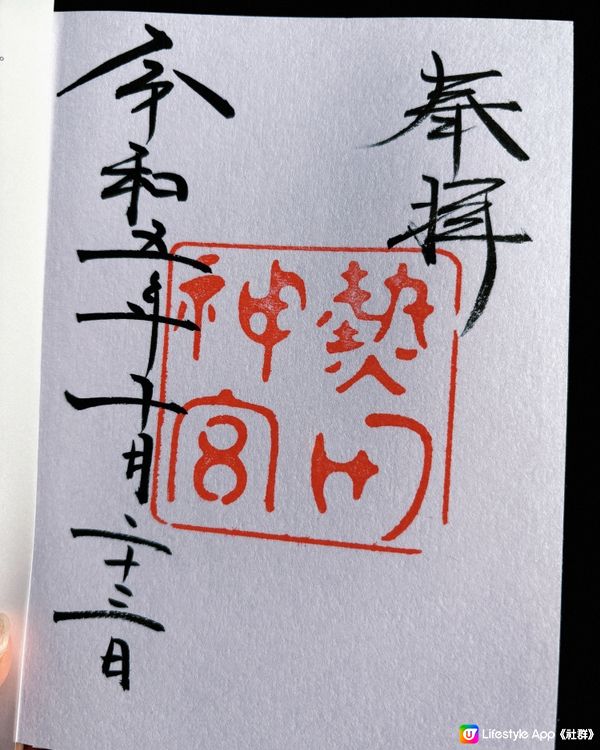 奉拝
熱田
神宮
令和五年十月二十三日
U Lifestyle App《社群》